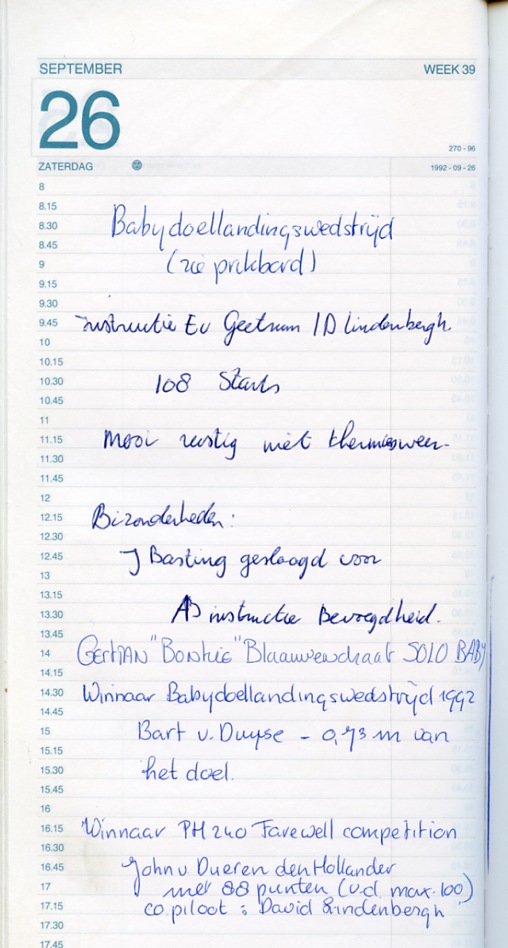 SEPTEMBER WEEK 39
26
270 - 96
ZATERDAG 1992 - 09 - 26
8
8.15
8.30 Babydoellandingswedstrijd
8.45
9 (zie prikbord)
9.15
9.30
9.45 instructie Ev Geetrum / D Lindenbergh.
10
10.15
10.30 108 Starts
10.45
11
11.15 mooi rustig niet thermiesweer.
11.30
11.45
12
12.15 Bizonderheden:
12.30
12.45 J Basting geslaagd voor
13
13.15
13.30 AB instructie Bevoegdheid.
13.45
14 GertJAN "Bonkie" Blaauwendraat SOLO BABY
14.15
14.30 Winnaar Babydoellandingswedstrijd 1992
14.45
15 Bart v. Duyse - 0,73 m van
15.15
15.30 het doel.
15.45
16
16.15 Winnaar PH 240 Farewell competition
16.30
16.45 John v Dueren den Hollander
17 met 88 punten (v.d. max. 100)
17.15 co. piloot : David Lindenbergh
17.30
17.45